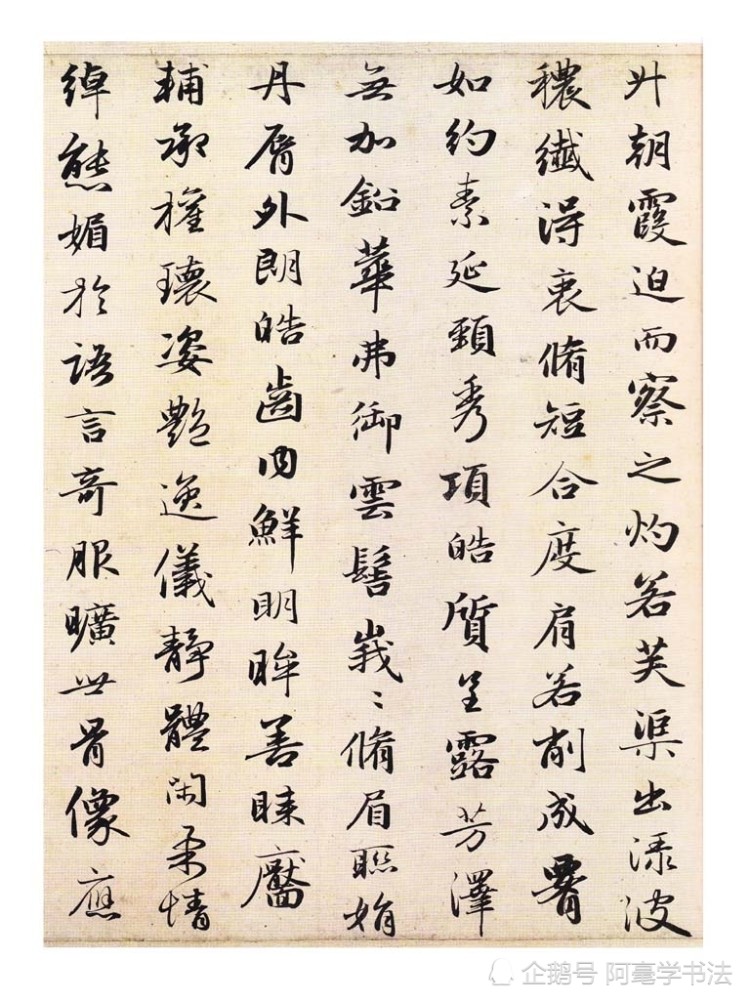 升朝霞迫而察之灼若芙渠出淥波
穠纖得衷脩短合度肩若削成
如約素延頸秀項皓質呈露芳澤
無加鉛華弗御雲髻峩〻脩眉聯娟
丹脣外朗皓齒内鮮明眸善睞靨
輔承權瓌姿艷逸儀靜體閑柔情
綽態媚於語言奇服曠世骨像應
企鹅号 阿毫学书法